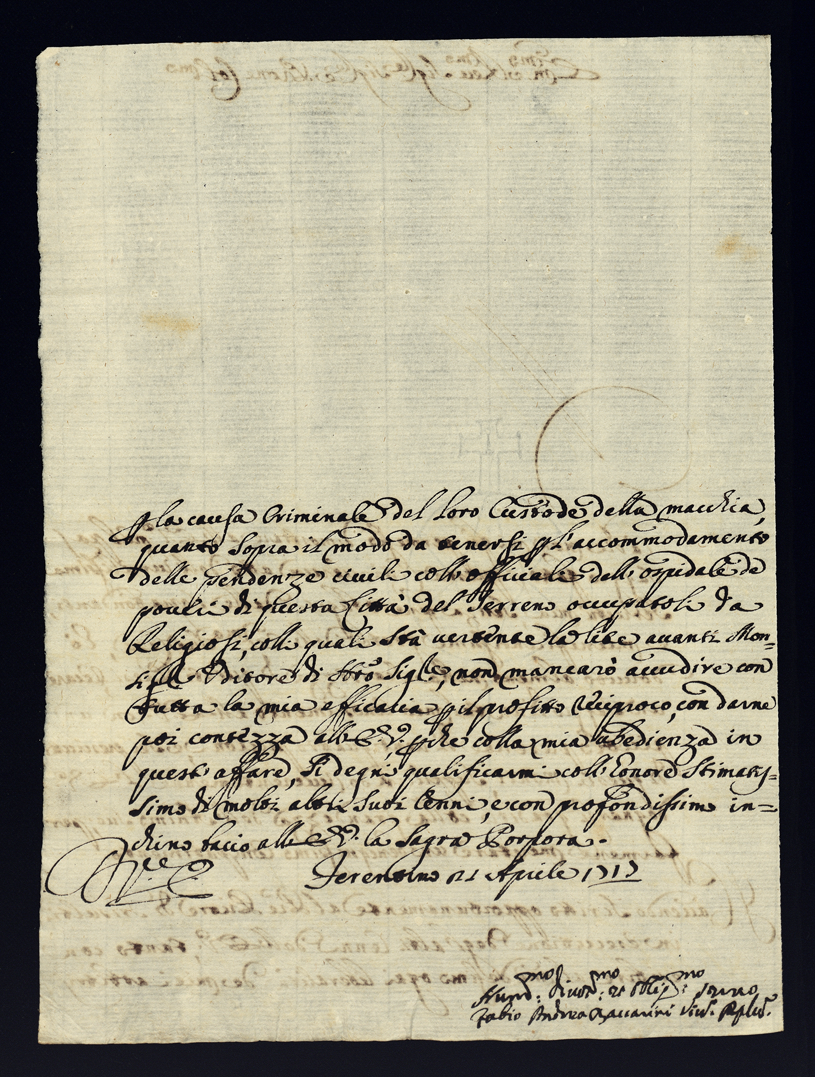 la causa Criminale del loro Custode della macchia,
quanto sopra il modo da tenersi l'accommodamento
delle pendenze civili coll'offitiale dell'ospidale de
poveri di questa Città del Terreno occupatoli da
Religiosi, colli quali stà vertente la lite avanti Mon=
Uditore di non mancarò accudire con
tutta la mia efficacia il profitto reciproco, con darne
poi contezza all' E.V. colla mia ubedienza in
quest'affare, si degni qualificarmi coll'honore stimatis=
simo di molti altri suoi Cenni, e con profondissimo in=
chino bacio all' E.V. la Sagra Porpora.
Ferentino 21 Aprile 1717
Fabio Andrea